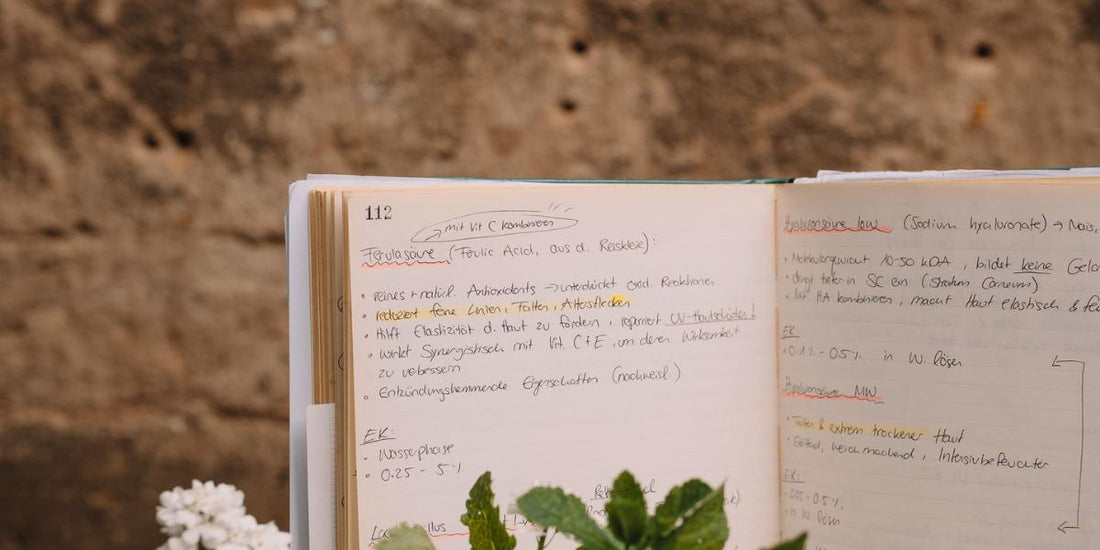 112
mit Vit C kombinieren
Ferulasäure (Ferulic Acid, aus d. Reiskleie):
• reines + natürl. Antioxidants → unterdrückt oxid. Reaktionen
• reduziert feine Linien, Falten, Altersflecken
• Hilft Elastizität d. Haut zu fördern, repariert UV-Hautschäden!
• wirkt Synergistisch mit Vit. C+E, um deren Wirksamkeit
zu verbessern
• Entzündungshemmende Eigenschaften (nachweisl.)
EK:
- Wasserphase
• 0.25 - 5%
Hyaluronsäure low (Sodium hyaluronate) → Mais,
• Molekulargewicht 10-50 kDA, bildet keine
• dringt tiefer in SC ein (Stratum Corneum)
HA kombinieren, macht Haut elastisch &
EK
• 0.1% - 0.5% in W. lösen
Hyaluronsäure MW
• Falten & extrem trockener Haut
weichmachend, Intensivbefeuchter
EK:
- 0.5%
in W. lösen